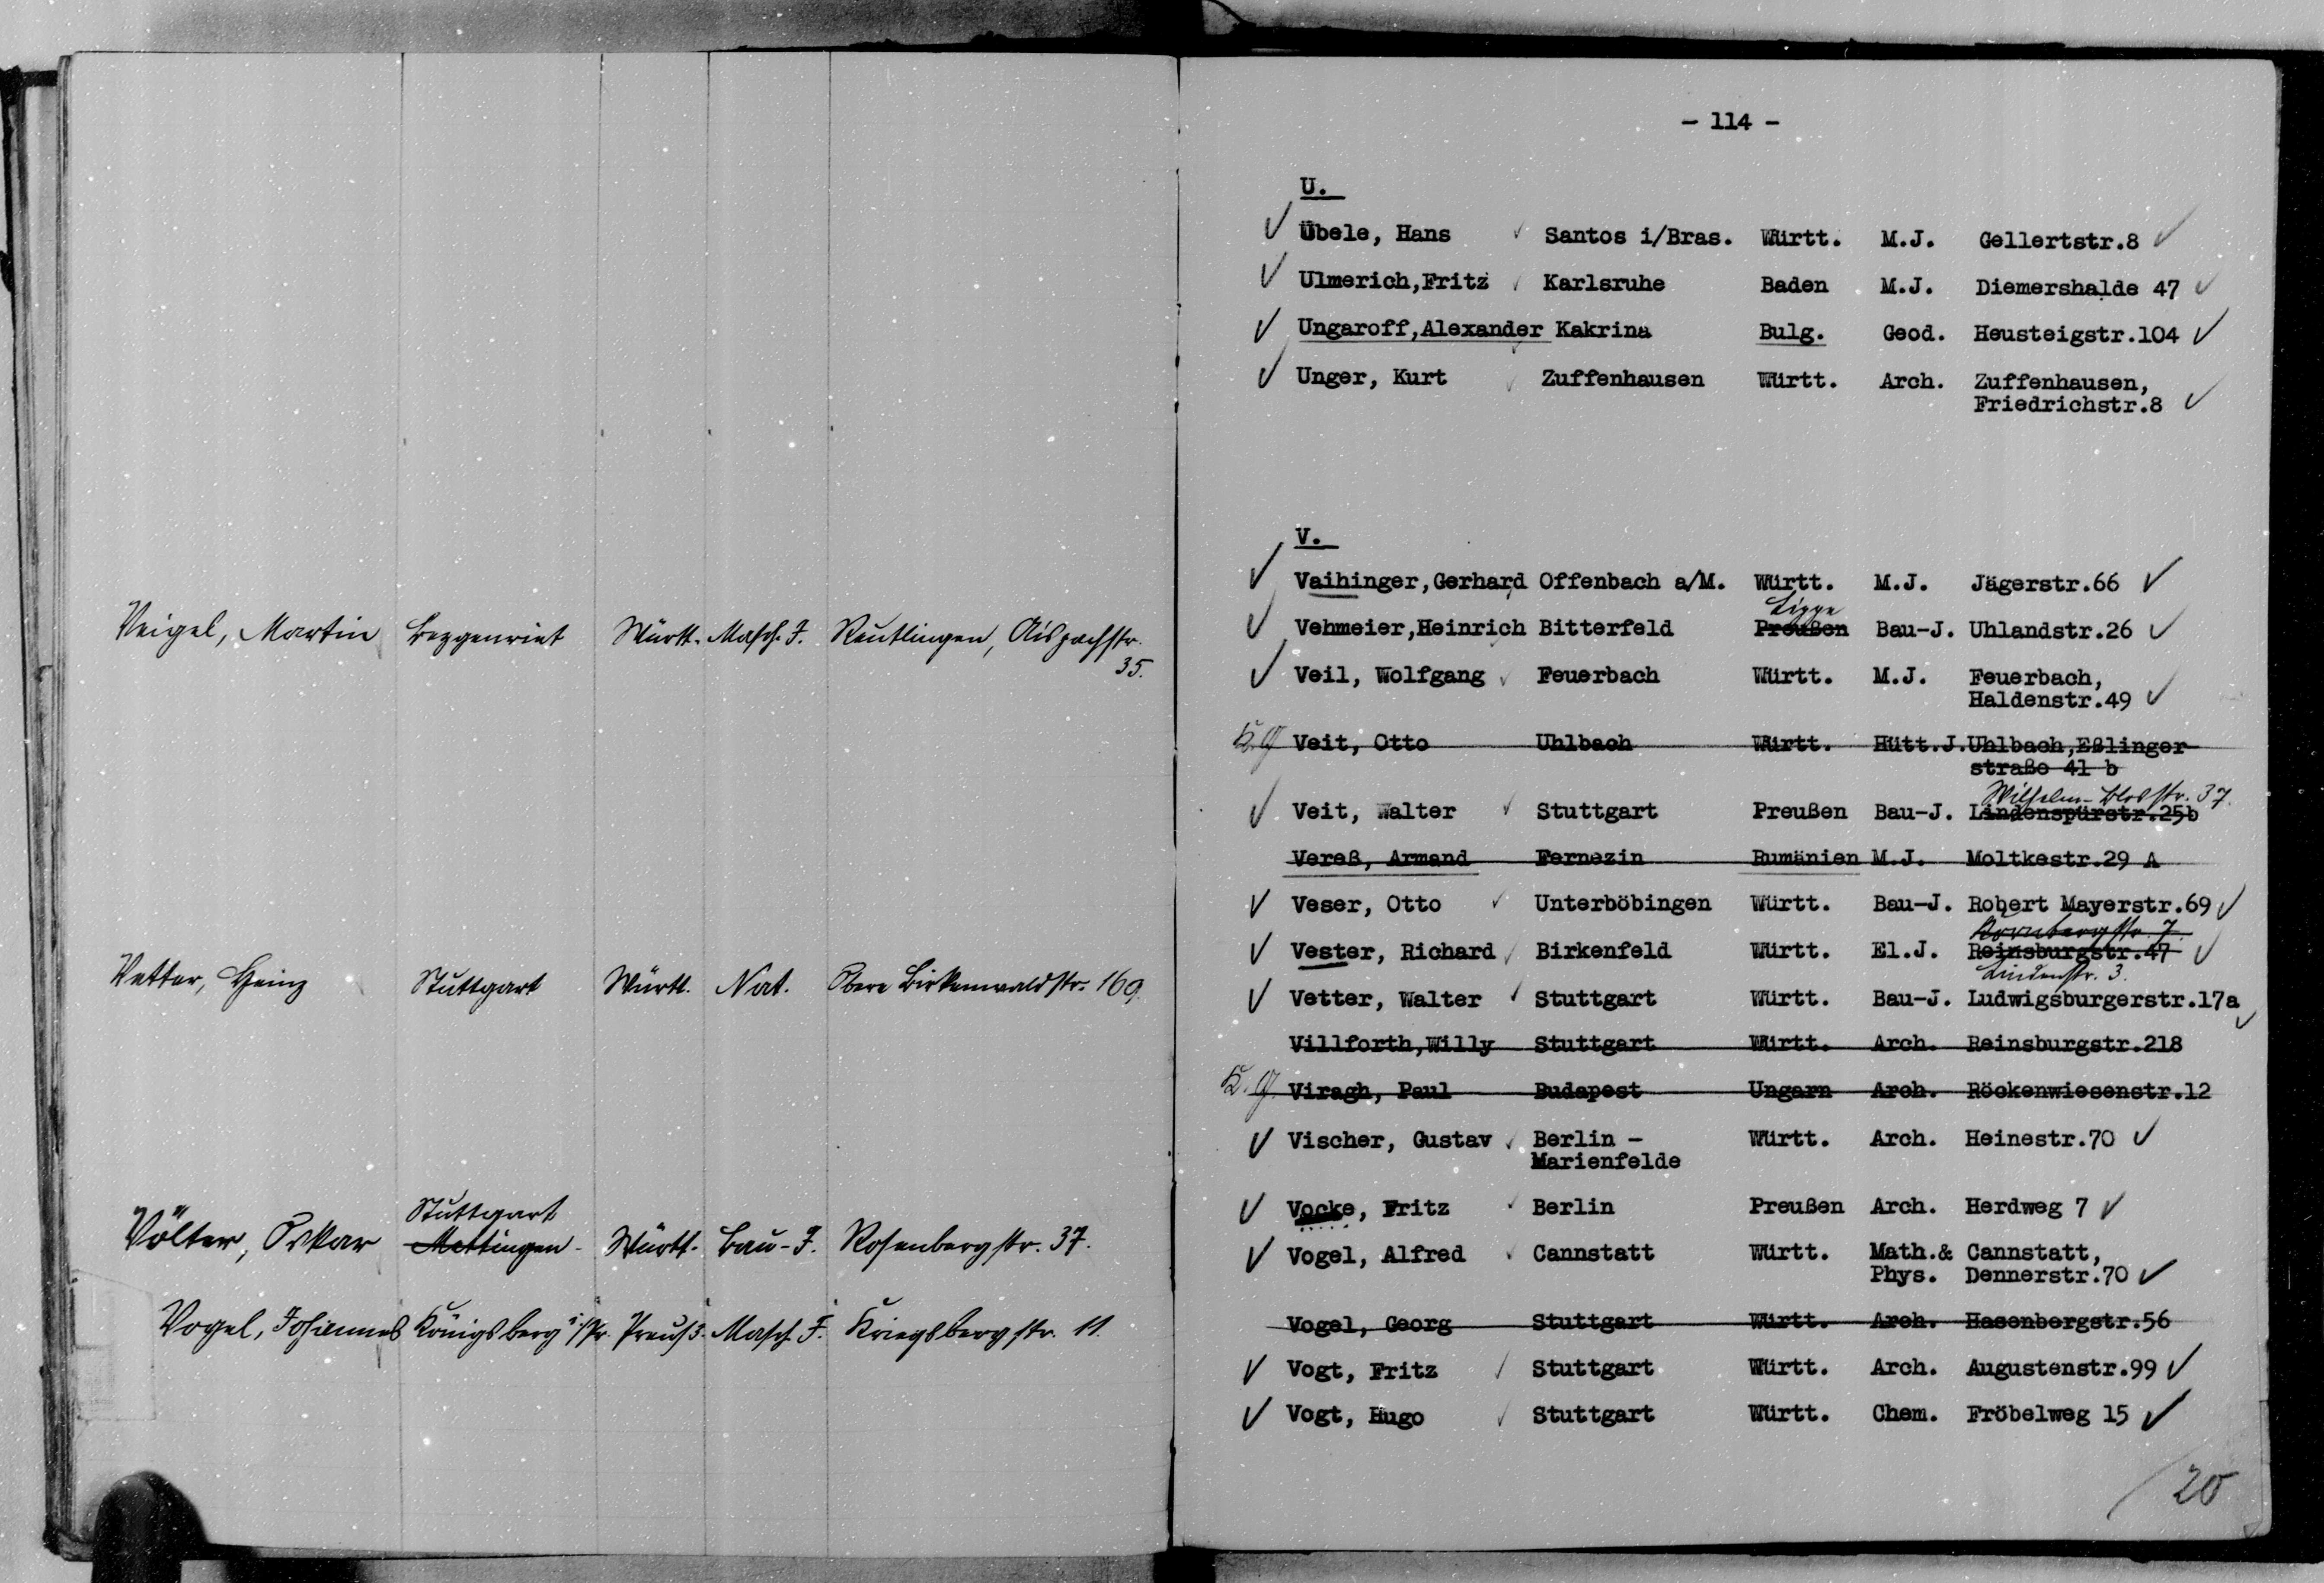 Veigel, Martin Bezgenriet Württ. Masch. I. Reutlingen, Aispachstr.
35.
Vetter, Heinz Stuttgart Württ. Nat. Obere Birkenwaldstr. 169.
Stuttgart
Völter, Oskar Mettingen Württ. Bau-I. Rosenbergstr. 37.
Vogel, Johannes Königsberg i/Pr. Preuß. Masch. I. Kriegsbergstr. 11.
- 114 -
U.
Übele, Hans Santos i/Bras. Württ. M.J. Gellertstr.8
Ulmerich,Fritz Karlsruhe Baden M.J. Diemershalde 47
Ungaroff,Alexander Kakrina Bulg. Geod. Heusteigstr.104
Unger, Kurt Zuffenhausen Württ. Arch. Zuffenhausen,
Friedrichstr.8
V.
Vaihinger,Gerhard Offenbach a/M. Württ. M.J. Jägerstr.66
Lippe
Vehmeier,Heinrich Bitterfeld Preußen Bau-J. Uhlandstr.26
Veil, Wolfgang Feuerbach Württ. M.J. Feuerbach,
Haldenstr.49
Veit, Otto Uhlbach Württ. Hütt.J.Uhlbach,Eßlinger
straße 41 b
Wilhelm-Blosstr. 37.
Veit, Walter Stuttgart Preußen Bau-J. Lindenspürstr.25b
Vereß, Armand Fernezin Rumänien M.J. Moltkestr.29 A
Veser, Otto Unterböbingen Württ. Bau-J. Robert Mayerstr.69
Dornbergstr. 7.
Vester, Richard Birkenfeld Württ. El.J. Reinsburgstr.47
Lindenstr. 3.
Vetter, Walter Stuttgart Württ. Bau-J. Ludwigsburgerstr.17a
Villforth,Willy Stuttgart Württ. Arch. Reinsburgstr.218
Viragh, Paul Budapest Ungarn Arch. Röckenwiesenstr.12
Vischer, Gustav Berlin - Württ. Arch. Heinestr.70
Marienfelde
Vocke, Fritz Berlin Preußen Arch. Herdweg 7
Vogel, Alfred Cannstatt Württ. Math.& Cannstatt,
Phys. Dennerstr.70
Vogel, Georg Stuttgart Württ. Arch. Hasenbergstr.56
Vogt, Fritz Stuttgart Württ. Arch. Augustenstr.99
Vogt, Hugo Stuttgart Württ. Chem. Fröbelweg 15
20